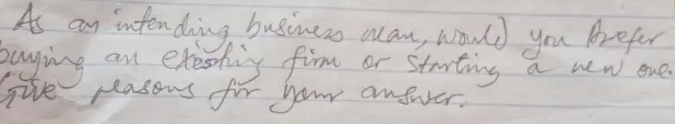 As an intending business man, would you prefer
buying an existing firm or starting a new one.
Give reasons for your answer.